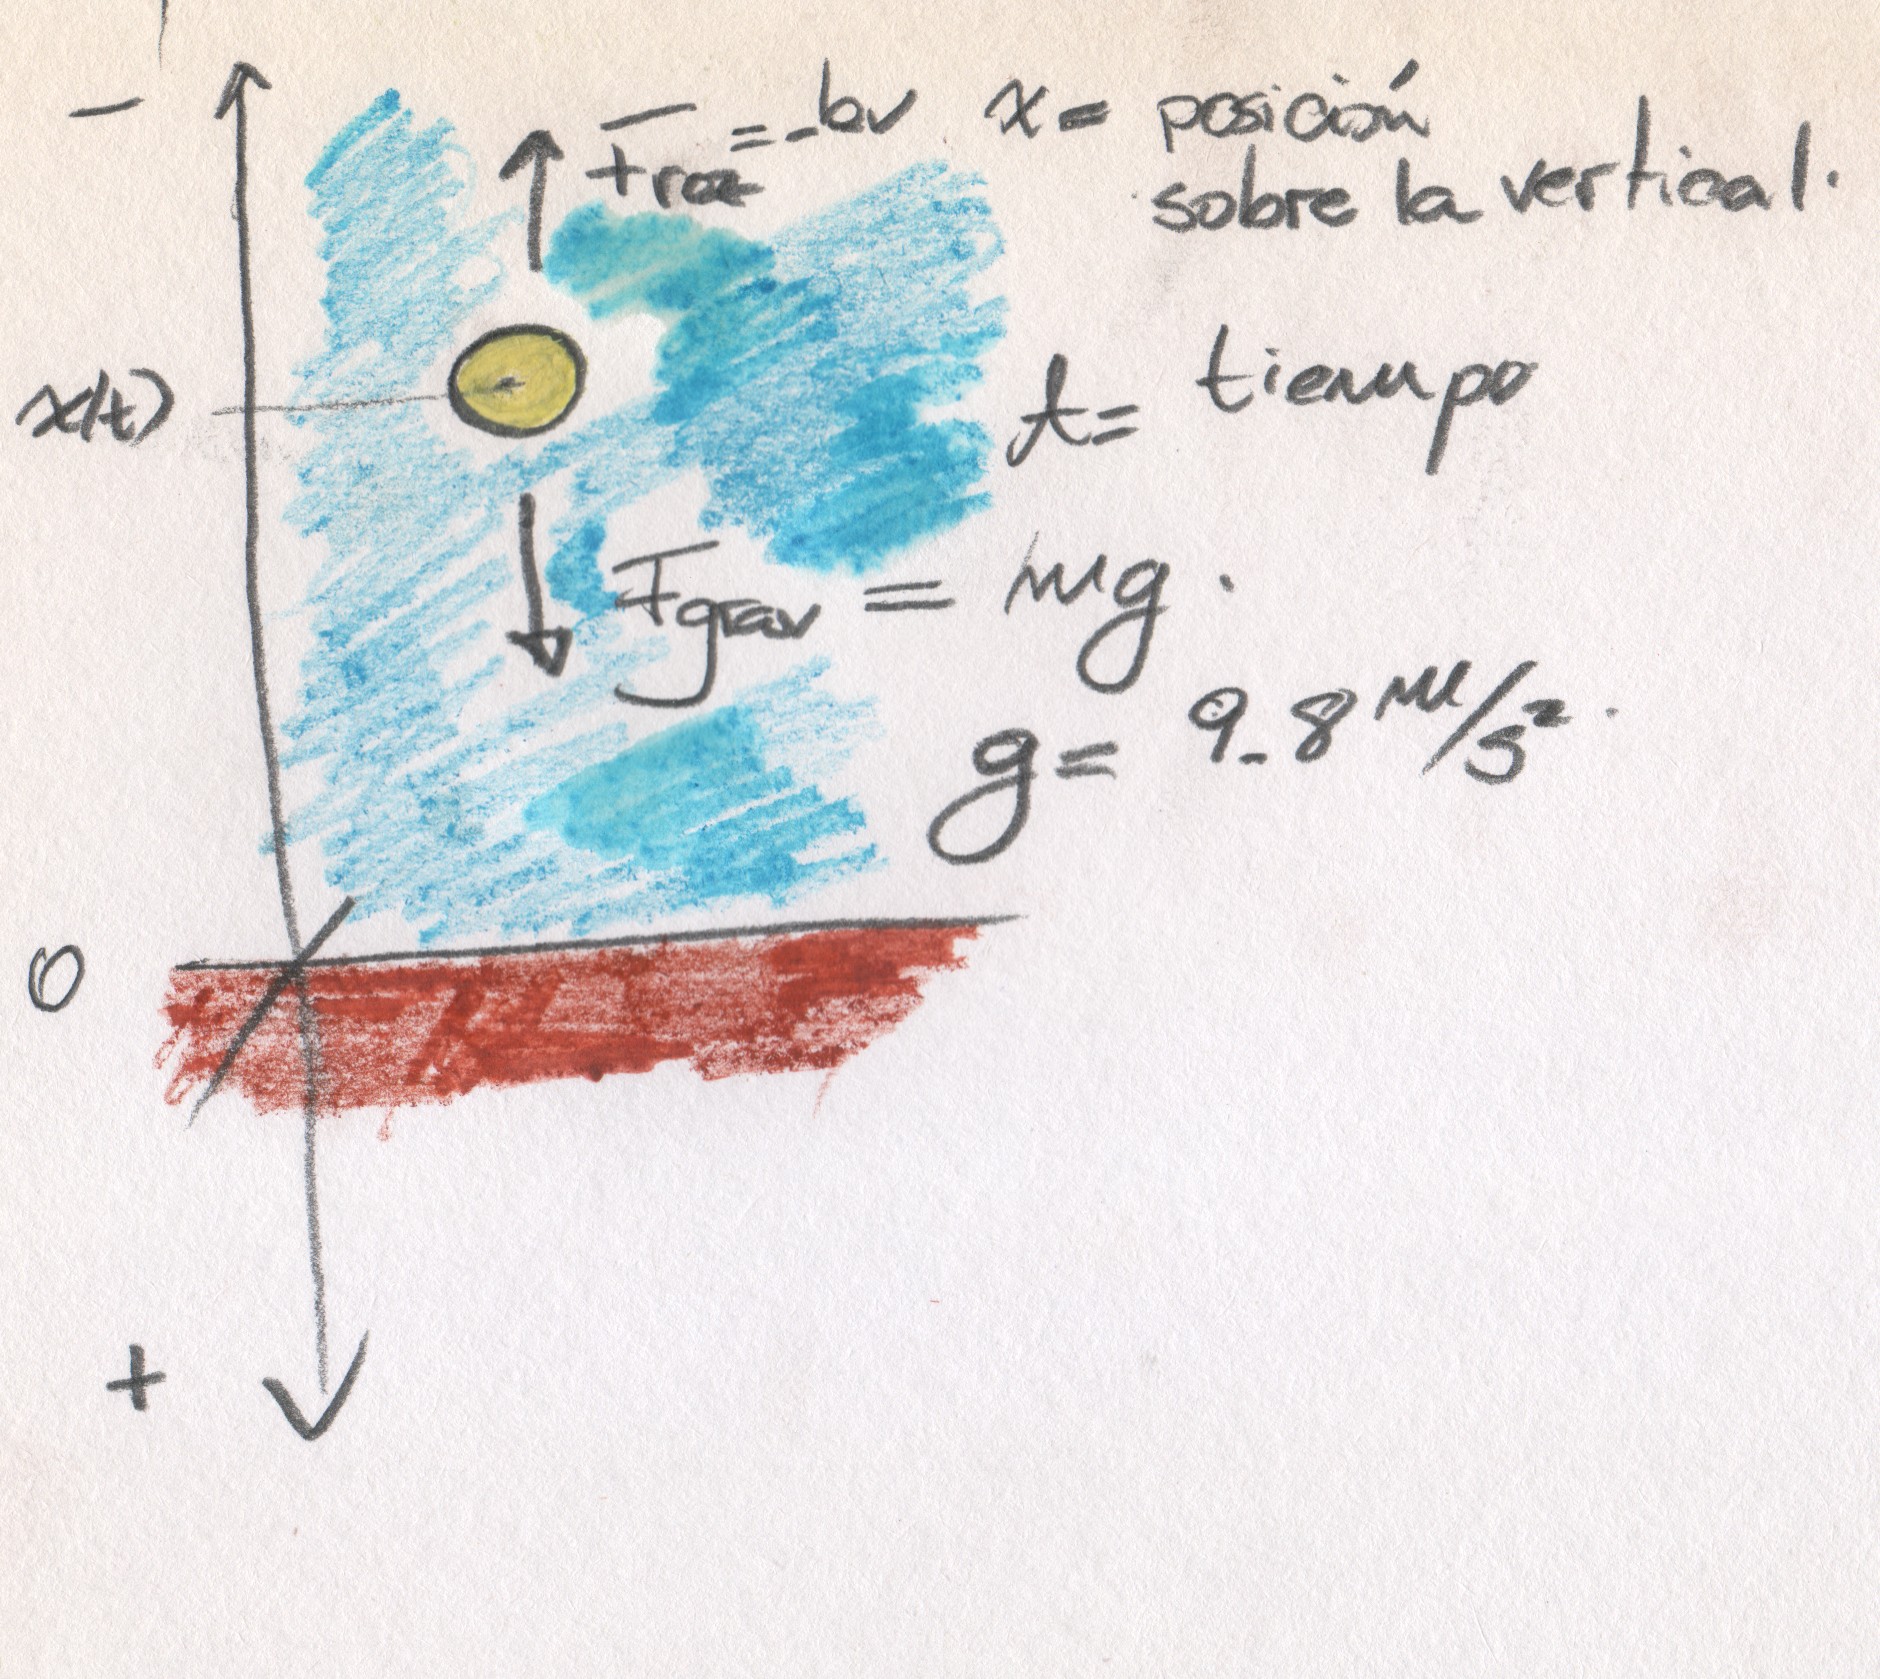 -
Froz = -bv
x = posición
sobre la vertical.
x(t)
t = tiempo
Fgrav = mg.
g = 9.8 m/s².
0
+